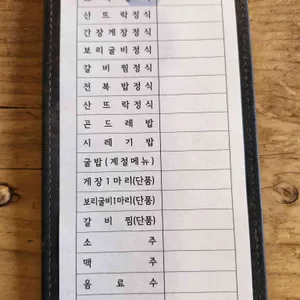 산뜨락정식
간장게장정식
보리굴비정식
갈비찜정식
전복밥정식
산뜨락정식
곤드레밥
시레기밥
굴밥(계절메뉴)
게장1마리(단품)
보리굴비1마리(단품)
갈비찜(단품)
소주
맥주
음료수